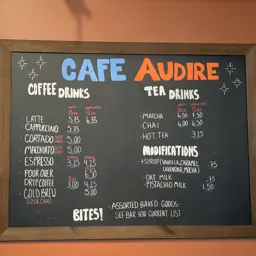 CAFE AUDIRE
COFFEE DRINKS
- LATTE 5.75 6.35
- CAPPUCCINO 5.75
- CORTADO 5.00
- MACCHIATO 5.00
- ESPRESSO 3.75 4.35
- POUR OVER 6.50
- DRIP COFFEE 3.00 4.35
- COLD BREW 5.00
TEA DRINKS
- MATCHA 6.50 7.50
- CHAI 6.00 6.50
- HOT TEA 3.75
MODIFICATIONS
+ SYRUP (VANILLA, CARAMEL, .75
LAVENDER, MOCHA)
- OAT MILK .75
- PISTACHIO MILK 1.50
BITES!
- ASSORTED BAKED GOODS -
SEE BAR FOR CURRENT LIST